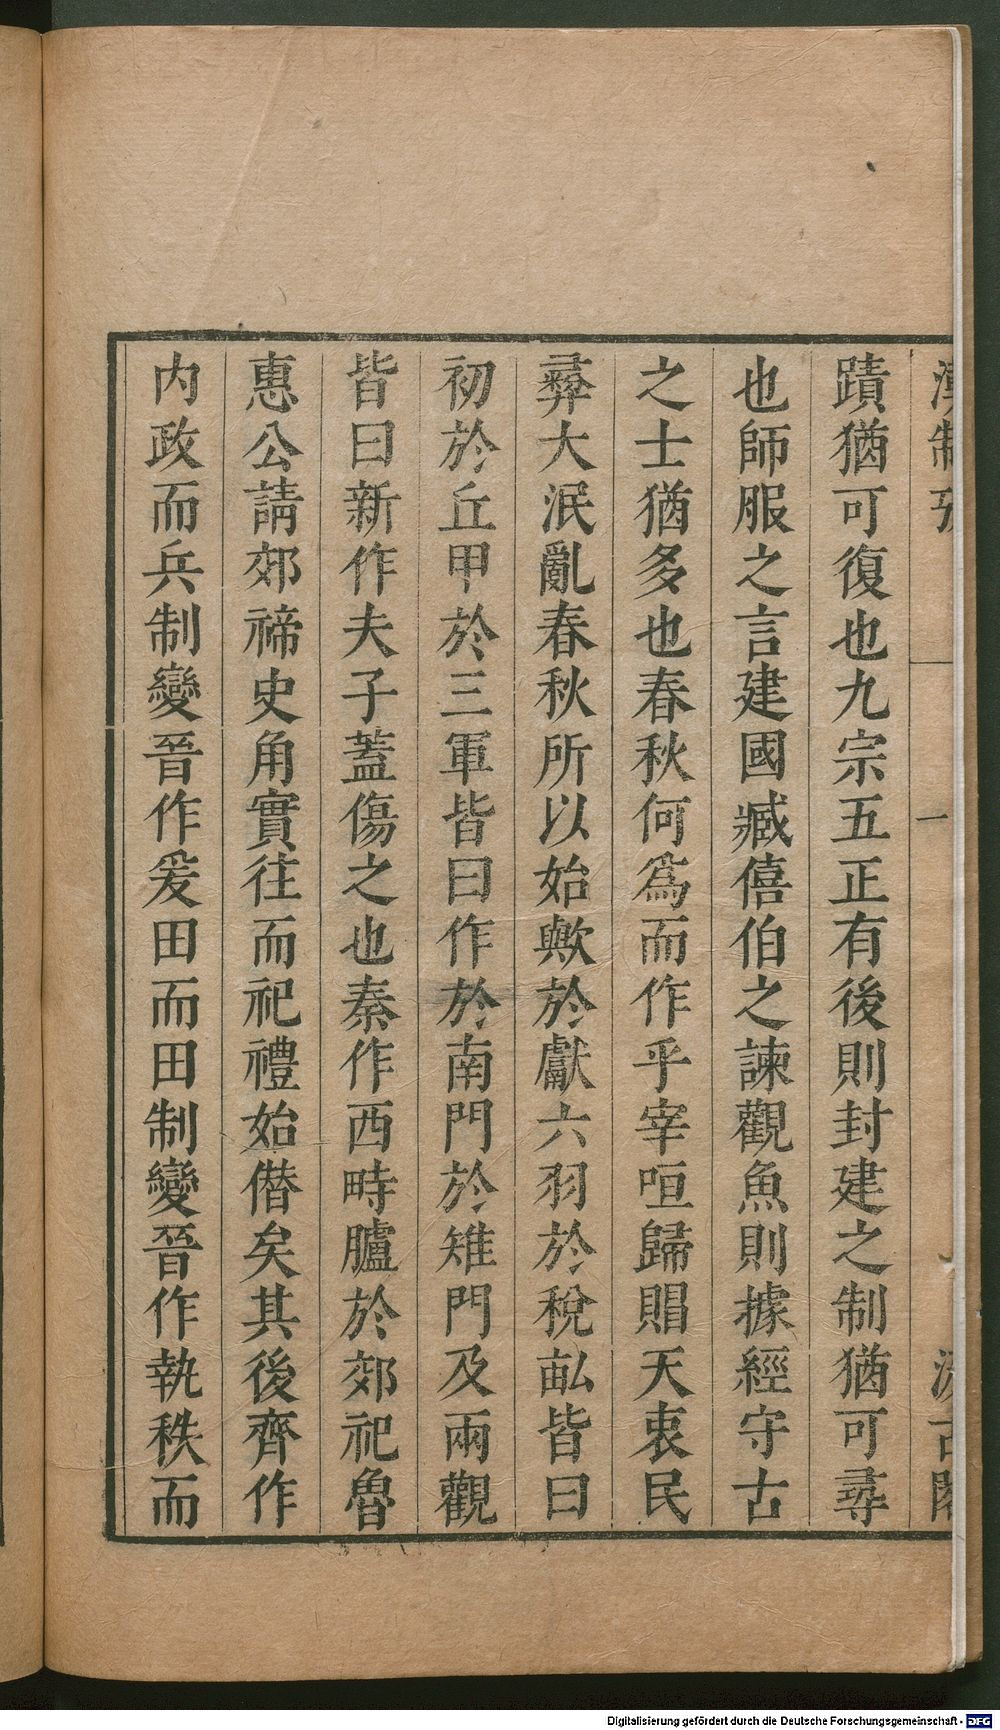 漢制攷 一 汲古閣
蹟猶可復也九宗五正有後則封建之制猶可尋
也師服之言建國臧僖伯之諫觀魚則據經守古
之士猶多也春秋何爲而作乎宰咺歸賵天衷民
彝大泯亂春秋所以始歟於獻六羽於稅畝皆曰
初於丘甲於三軍皆曰作於南門於雉門及兩觀
皆曰新作夫子蓋傷之也秦作西畤臚於郊祀魯
惠公請郊禘史角實往而祀禮始僭矣其後齊作
內政而兵制變晉作爰田而田制變晉作執秩而
Digitalisierung gefördert durch die Deutsche Forschungsgemeinschaft - DFG